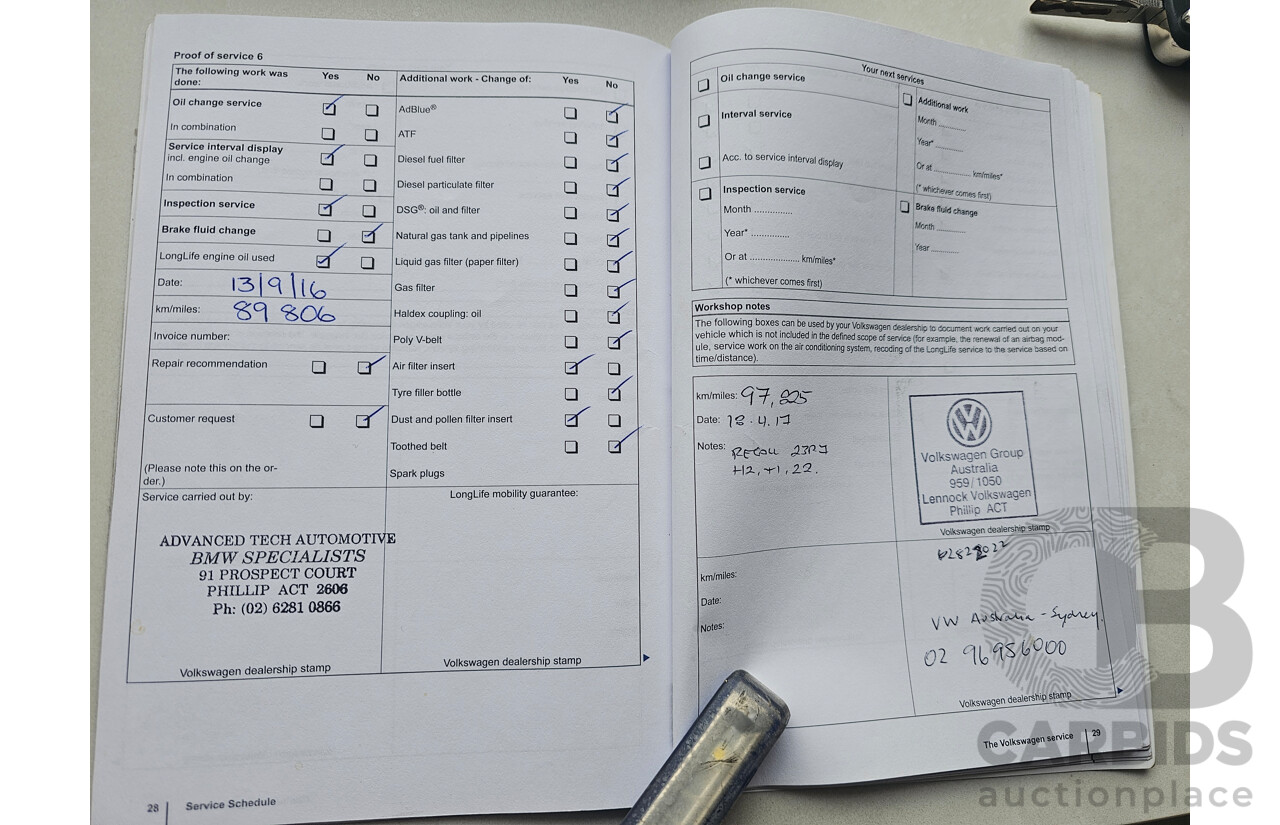 Proof of service 6
The following work was done: Yes No
Oil change service
In combination
Service interval display
incl. engine oil change
In combination
Inspection service
Brake fluid change
LongLife engine oil used
Date: 13/9/16
km/miles: 89 806
Invoice number:
Repair recommendation
Customer request
(Please note this on the or-
der.)
Service carried out by:
ADVANCED TECH AUTOMOTIVE
BMW SPECIALISTS
91 PROSPECT COURT
PHILLIP ACT 2606
Ph: (02) 6281 0866
Volkswagen dealership stamp
Additional work - Change of: Yes No
AdBlue®
ATF
Diesel fuel filter
Diesel particulate filter
DSG®: oil and filter
Natural gas tank and pipelines
Liquid gas filter (paper filter)
Gas filter
Haldex coupling: oil
Poly V-belt
Air filter insert
Tyre filler bottle
Dust and pollen filter insert
Toothed belt
Spark plugs
LongLife mobility guarantee:
Volkswagen dealership stamp
28 Service Schedule
Your next services
Oil change service
Interval service
Acc. to service interval display
Inspection service
Month ..............
Year* ..............
Or at .................... km/miles*
(* whichever comes first)
Additional work
Month ..........
Year* ..........
Or at .............. km/miles*
(* whichever comes first)
Brake fluid change
Month ..........
Year ..........
Workshop notes
The following boxes can be used by your Volkswagen dealership to document work carried out on your
vehicle which is not included in the defined scope of service (for example, the renewal of an airbag mod-
ule, service work on the air conditioning system, recoding of the LongLife service to the service based on
time/distance).
km/miles: 97,
Date: 18.4.17
Notes: RECALL
Volkswagen Group
Australia
959/1050
Lennock Volkswagen
Phillip ACT
Volkswagen dealership stamp
km/miles:
Date:
Notes:
VW Australia - Sydney.
02 96956000
Volkswagen dealership stamp
The Volkswagen service 29
CARBIDS
auctionplace